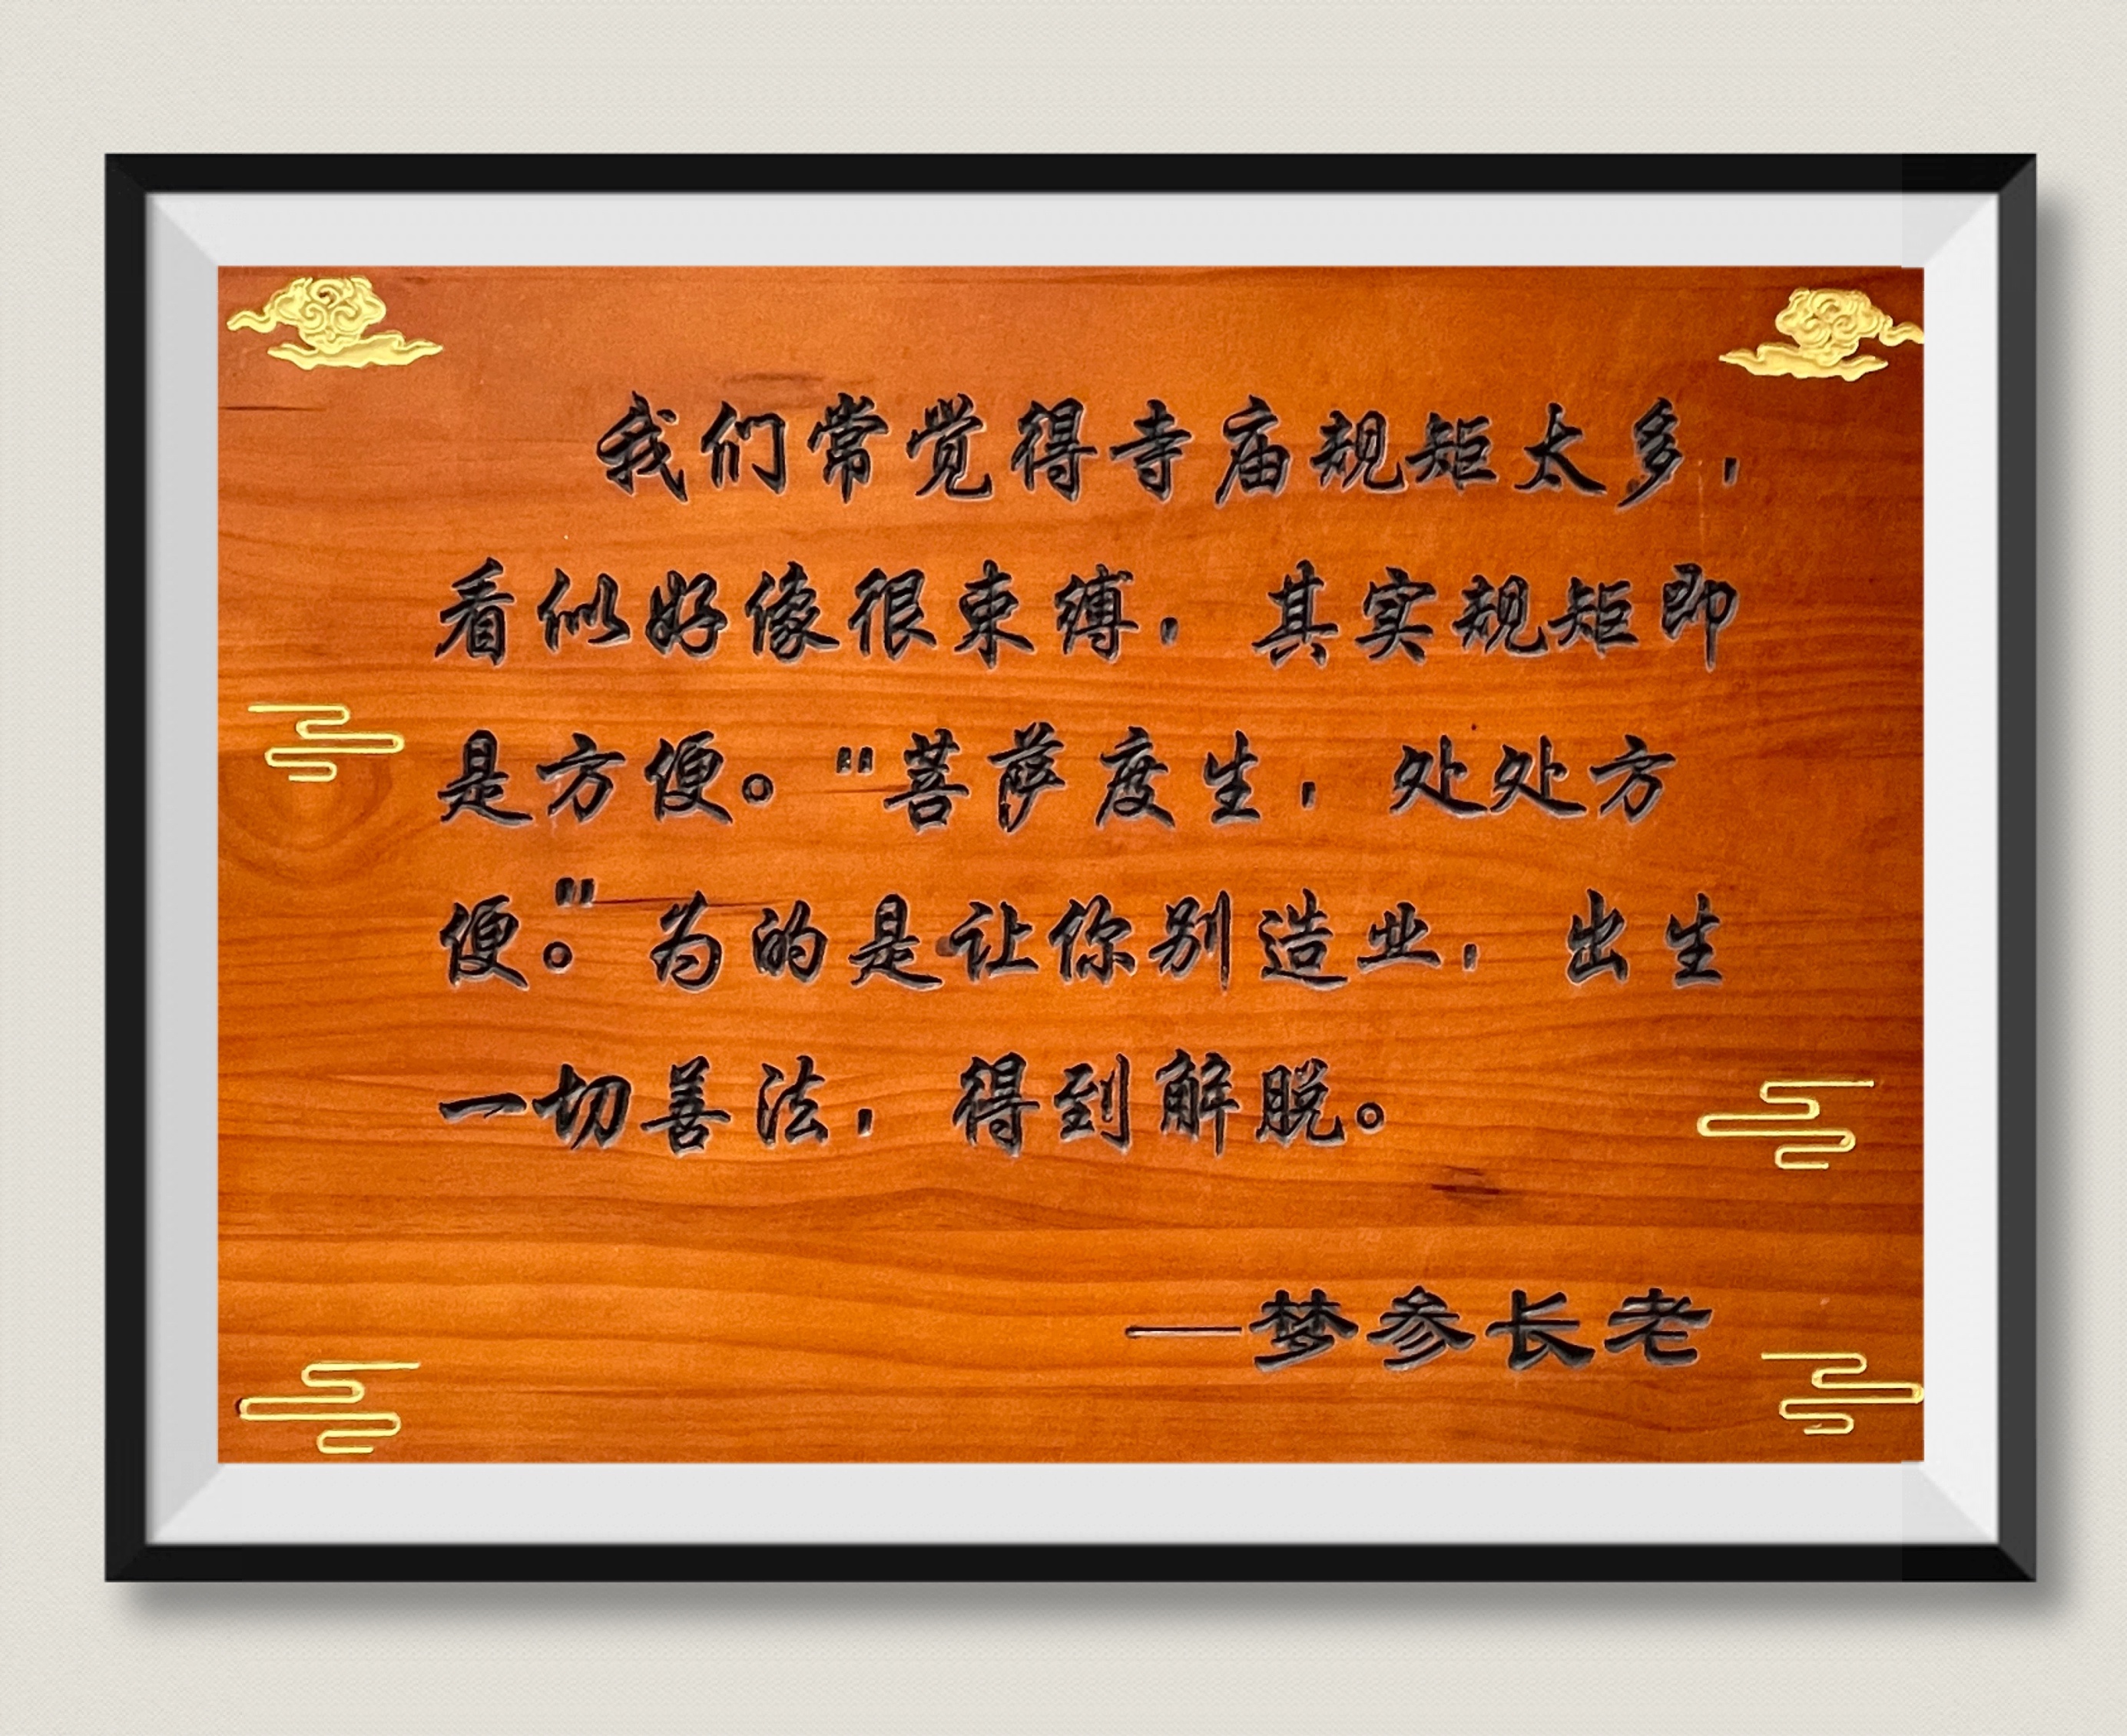 我们常觉得寺庙规矩太多，
看似好像很束缚，其实规矩即
是方便。"菩萨度生，处处方
便。"为的是让你别造业，出生
一切善法，得到解脱。
—梦参长老